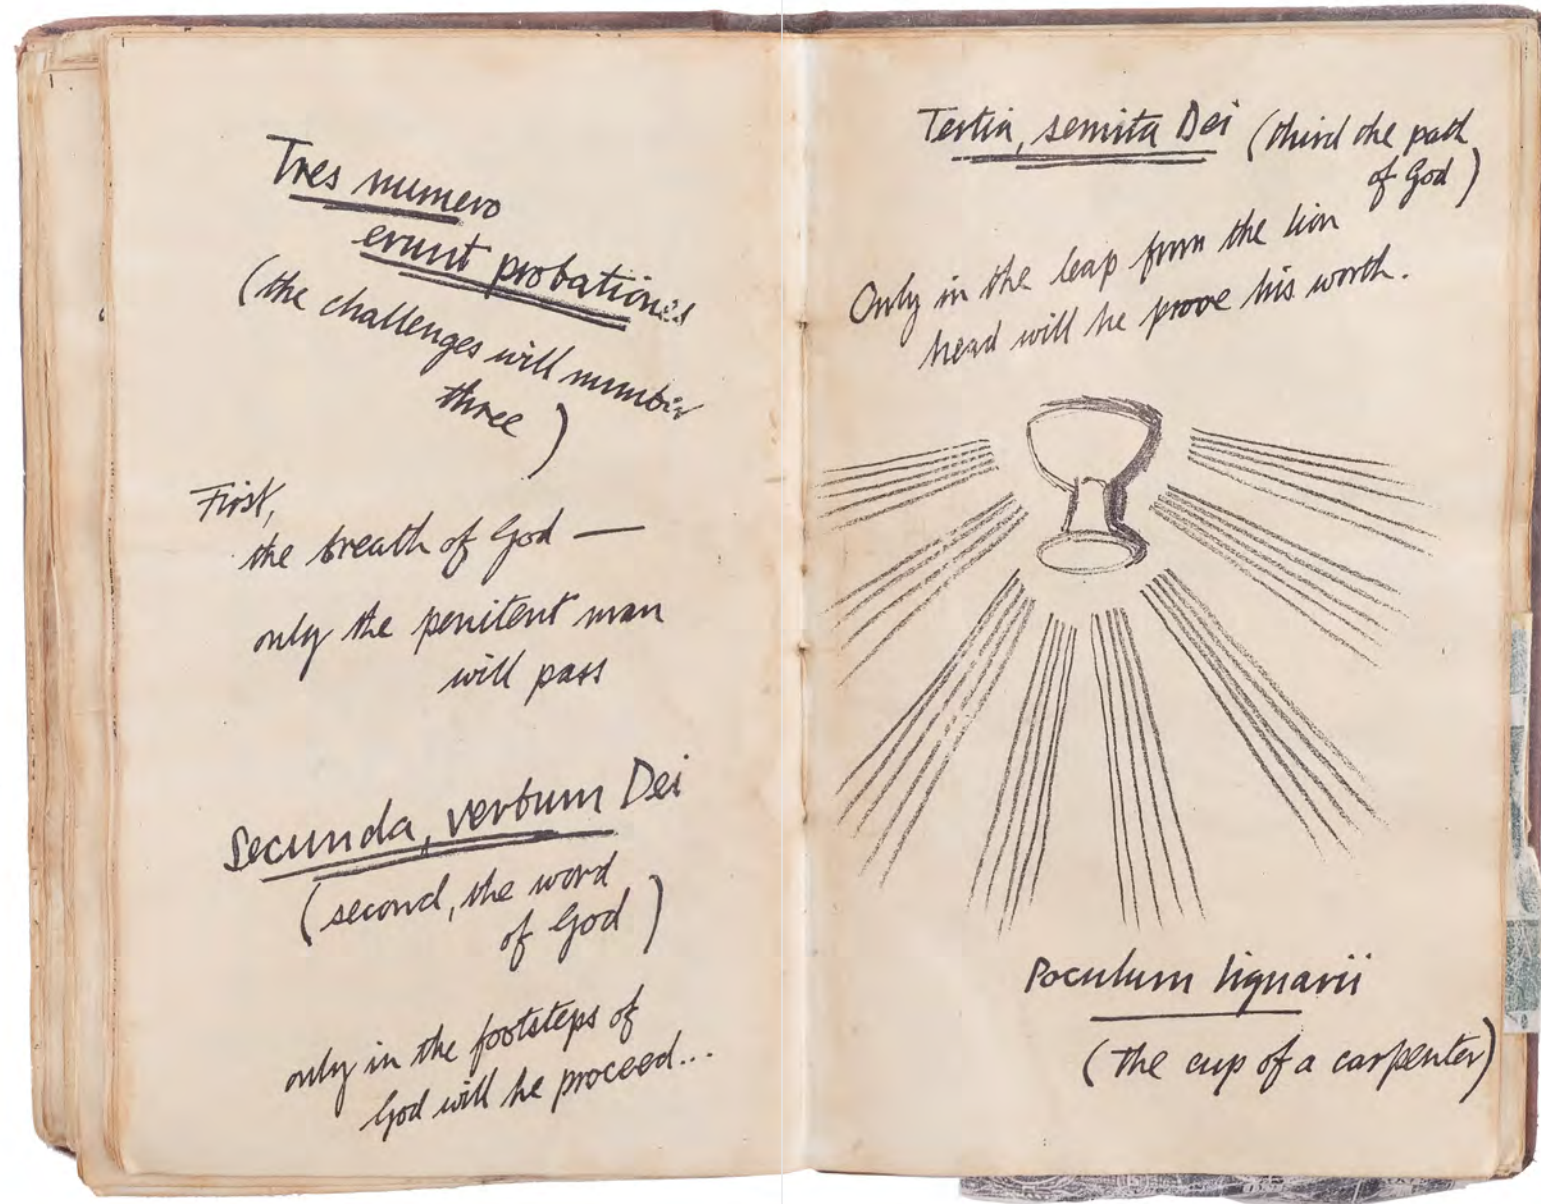 Tres numero
erunt probationes
(the challenges will number
three)
First,
the breath of God —
only the penitent man
will pass
Secunda, verbum Dei
(second, the word
of God)
only in the footsteps of
God will he proceed...
Tertia, semita Dei (third the path
of God)
Only in the leap from the lion
head will he prove his worth.
Poculum lignarii
(the cup of a carpenter)